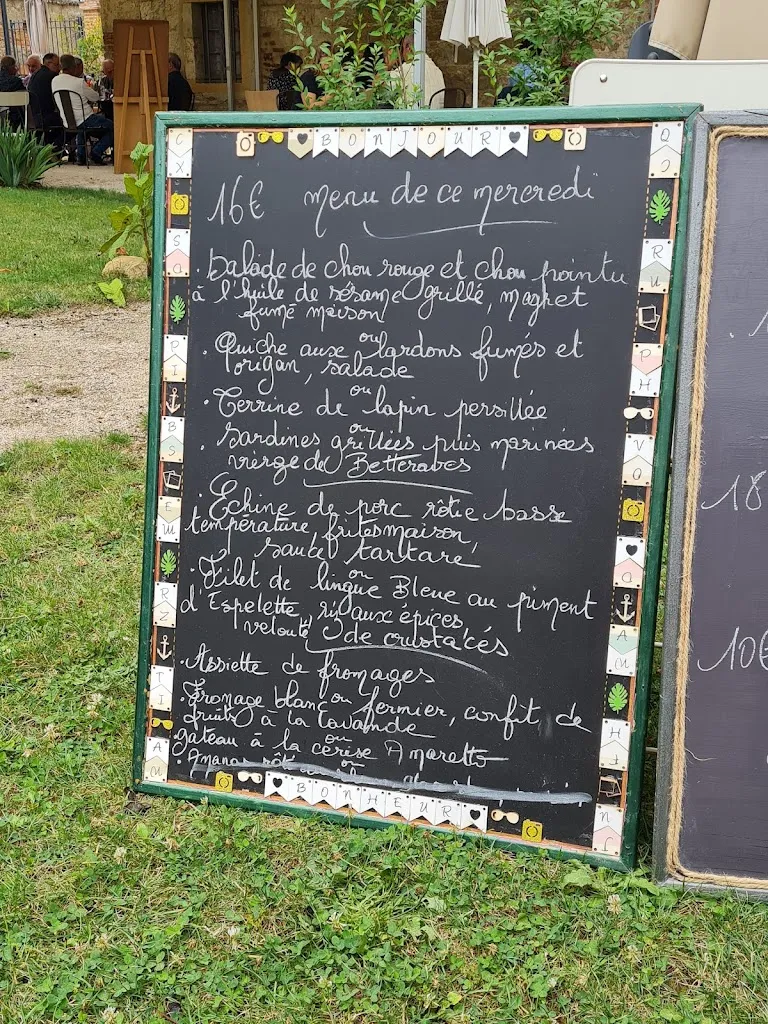 BONJOUR
16€ menu de ce mercredi
. Salade de chou rouge et chou pointu
à l'huile de sésame grillé, magret
fumé maison
ou
. Quiche aux lardons fumés et
origan, salade
ou
. Terrine de lapin persillée
ou
. Sardines grillées puis marinées
vierge de Betteraves
. Echine de porc rôtie basse
température, frites maison,
sauce tartare
ou
. Filet de lingue Bleue au piment
d'Espelette, riz aux épices,
velouté de crustacés
. Assiette de fromages
ou
. Fromage blanc fermier, confit de
fruits à la lavande
ou
. gâteau à la cerise Amaretto
ou
. Ananas rôti
BONHEUR
18
10€